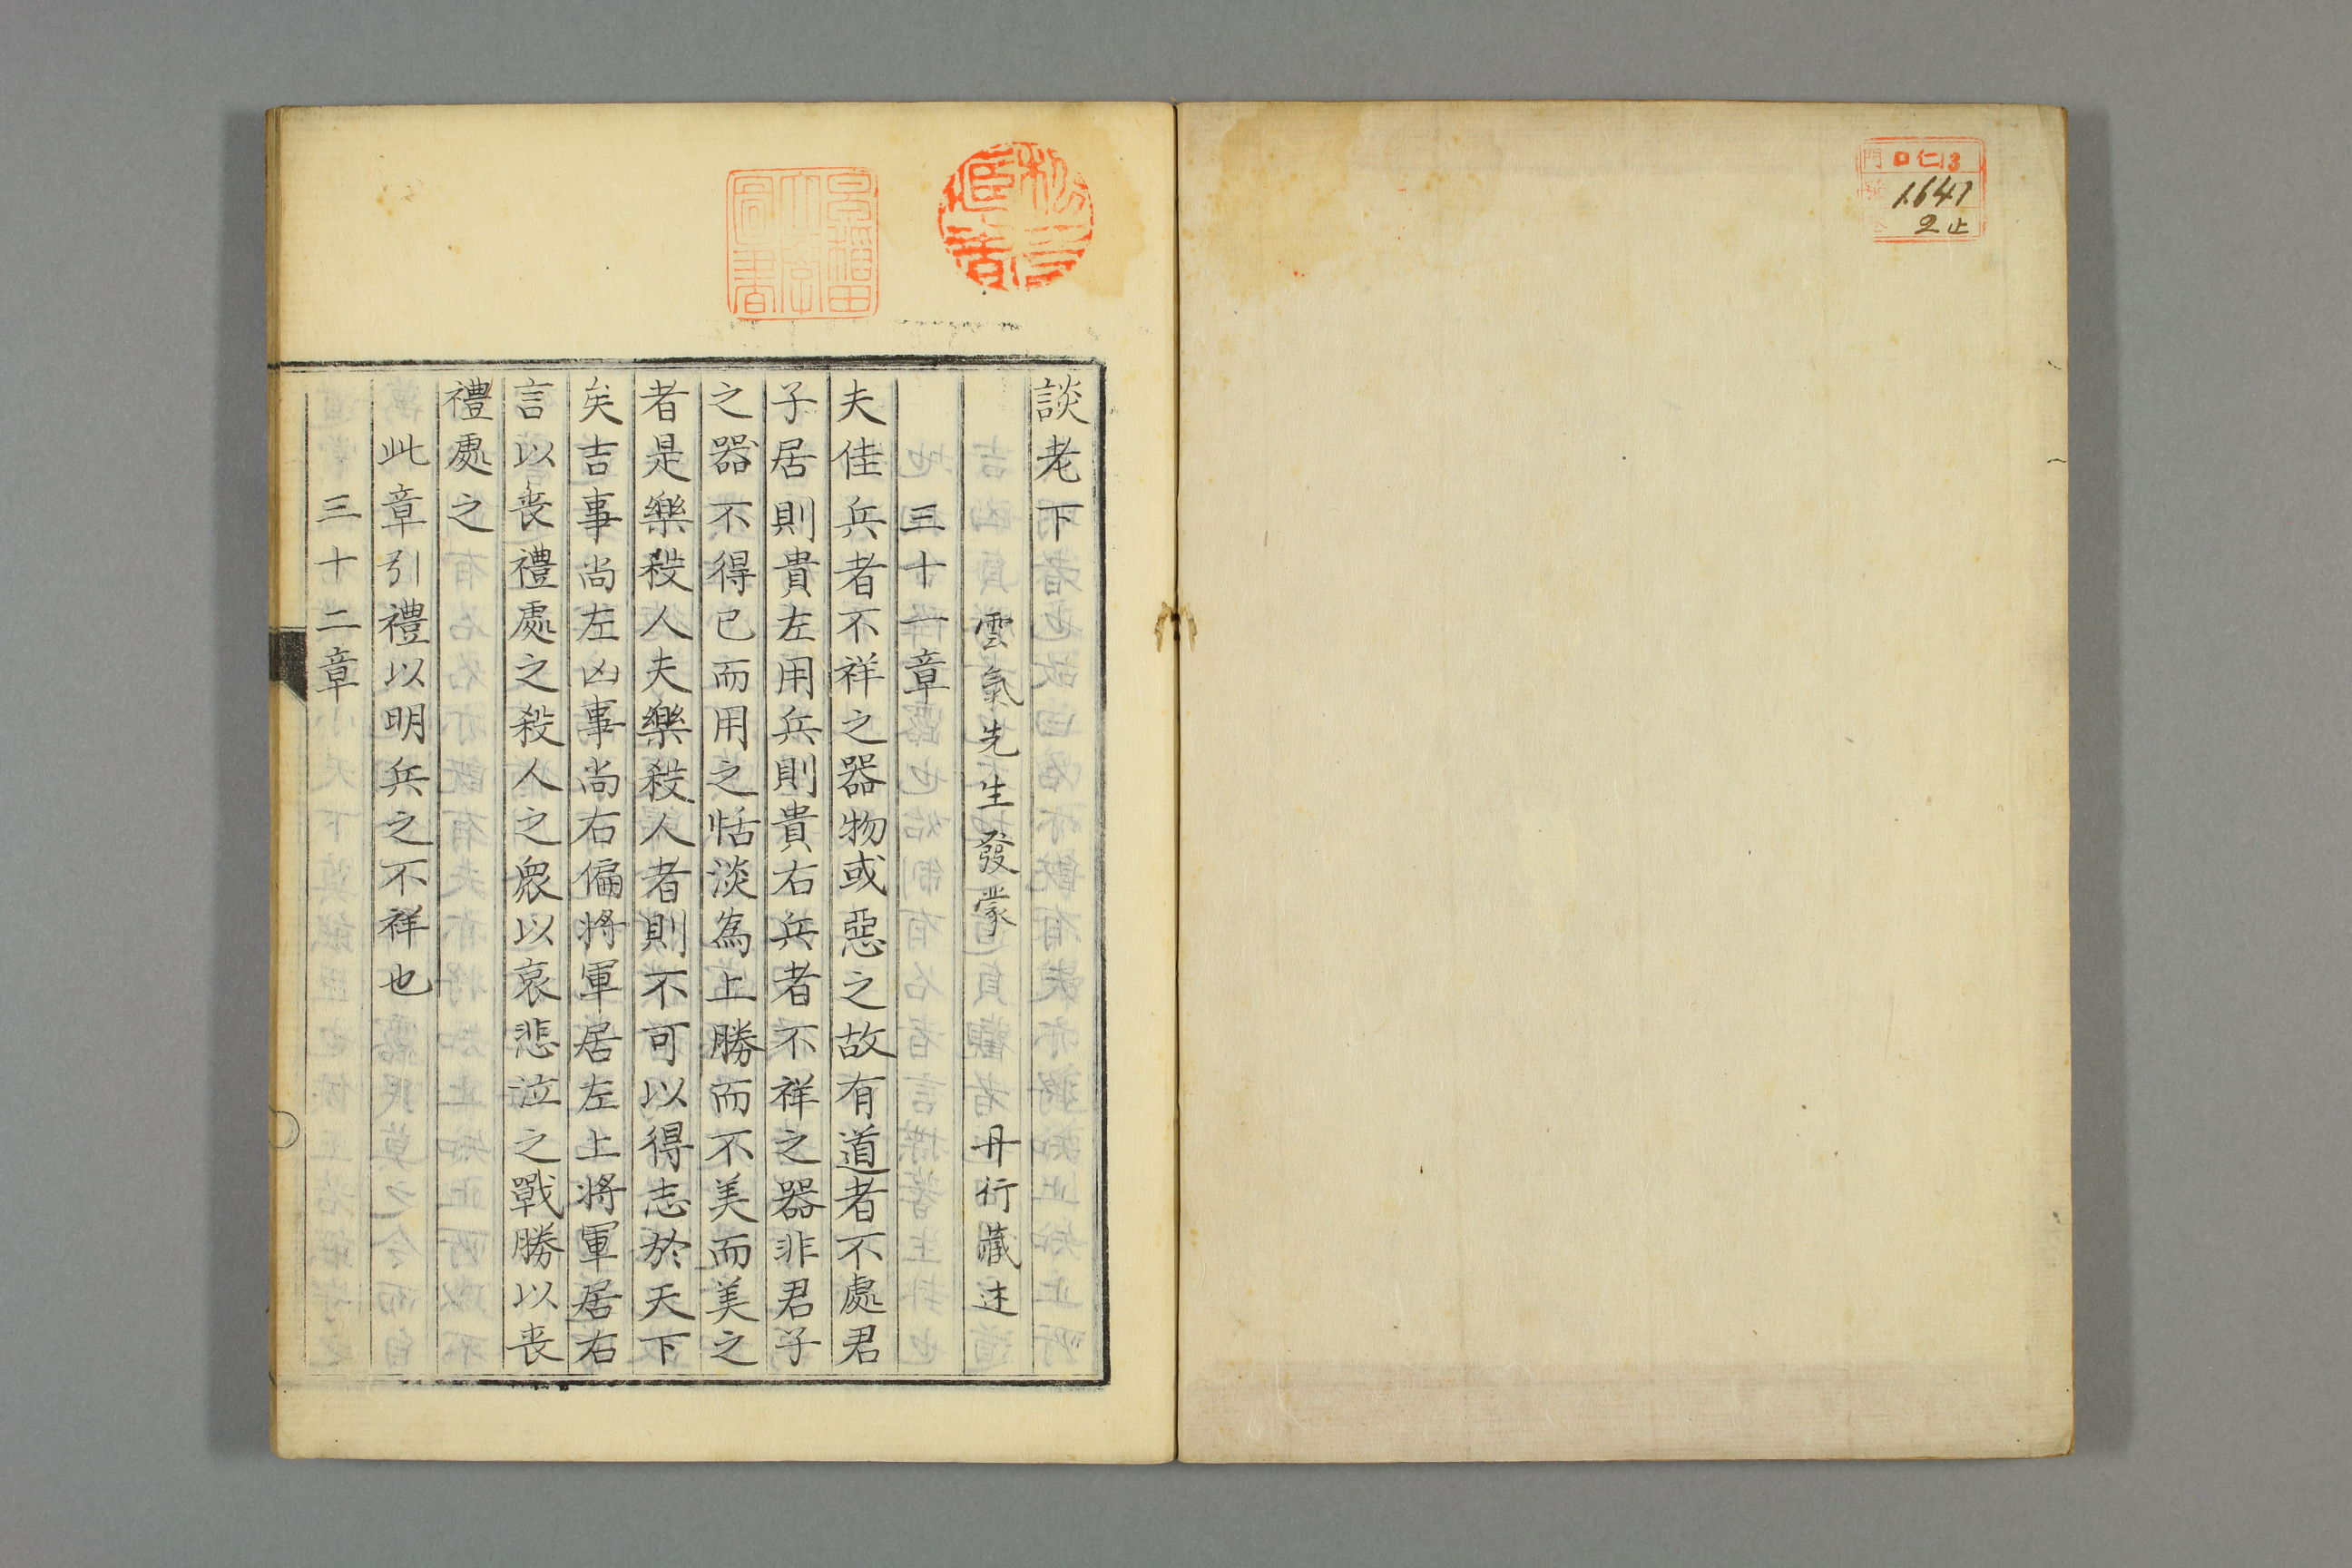 門 口仁13
1641
2止
早稲田大学図書
談老下
雲氣先生發蒙 丹行藏述
三十一章
夫佳兵者不祥之器物或惡之故有道者不處君
子居則貴左用兵則貴右兵者不祥之器非君子
之器不得已而用之恬淡為上勝而不美而美之
者是樂殺人夫樂殺人者則不可以得志於天下
矣吉事尚左凶事尚右偏將軍居左上將軍居右
言以喪禮處之殺人之衆以哀悲泣之戰勝以喪
禮處之
此章引禮以明兵之不祥也
三十二章